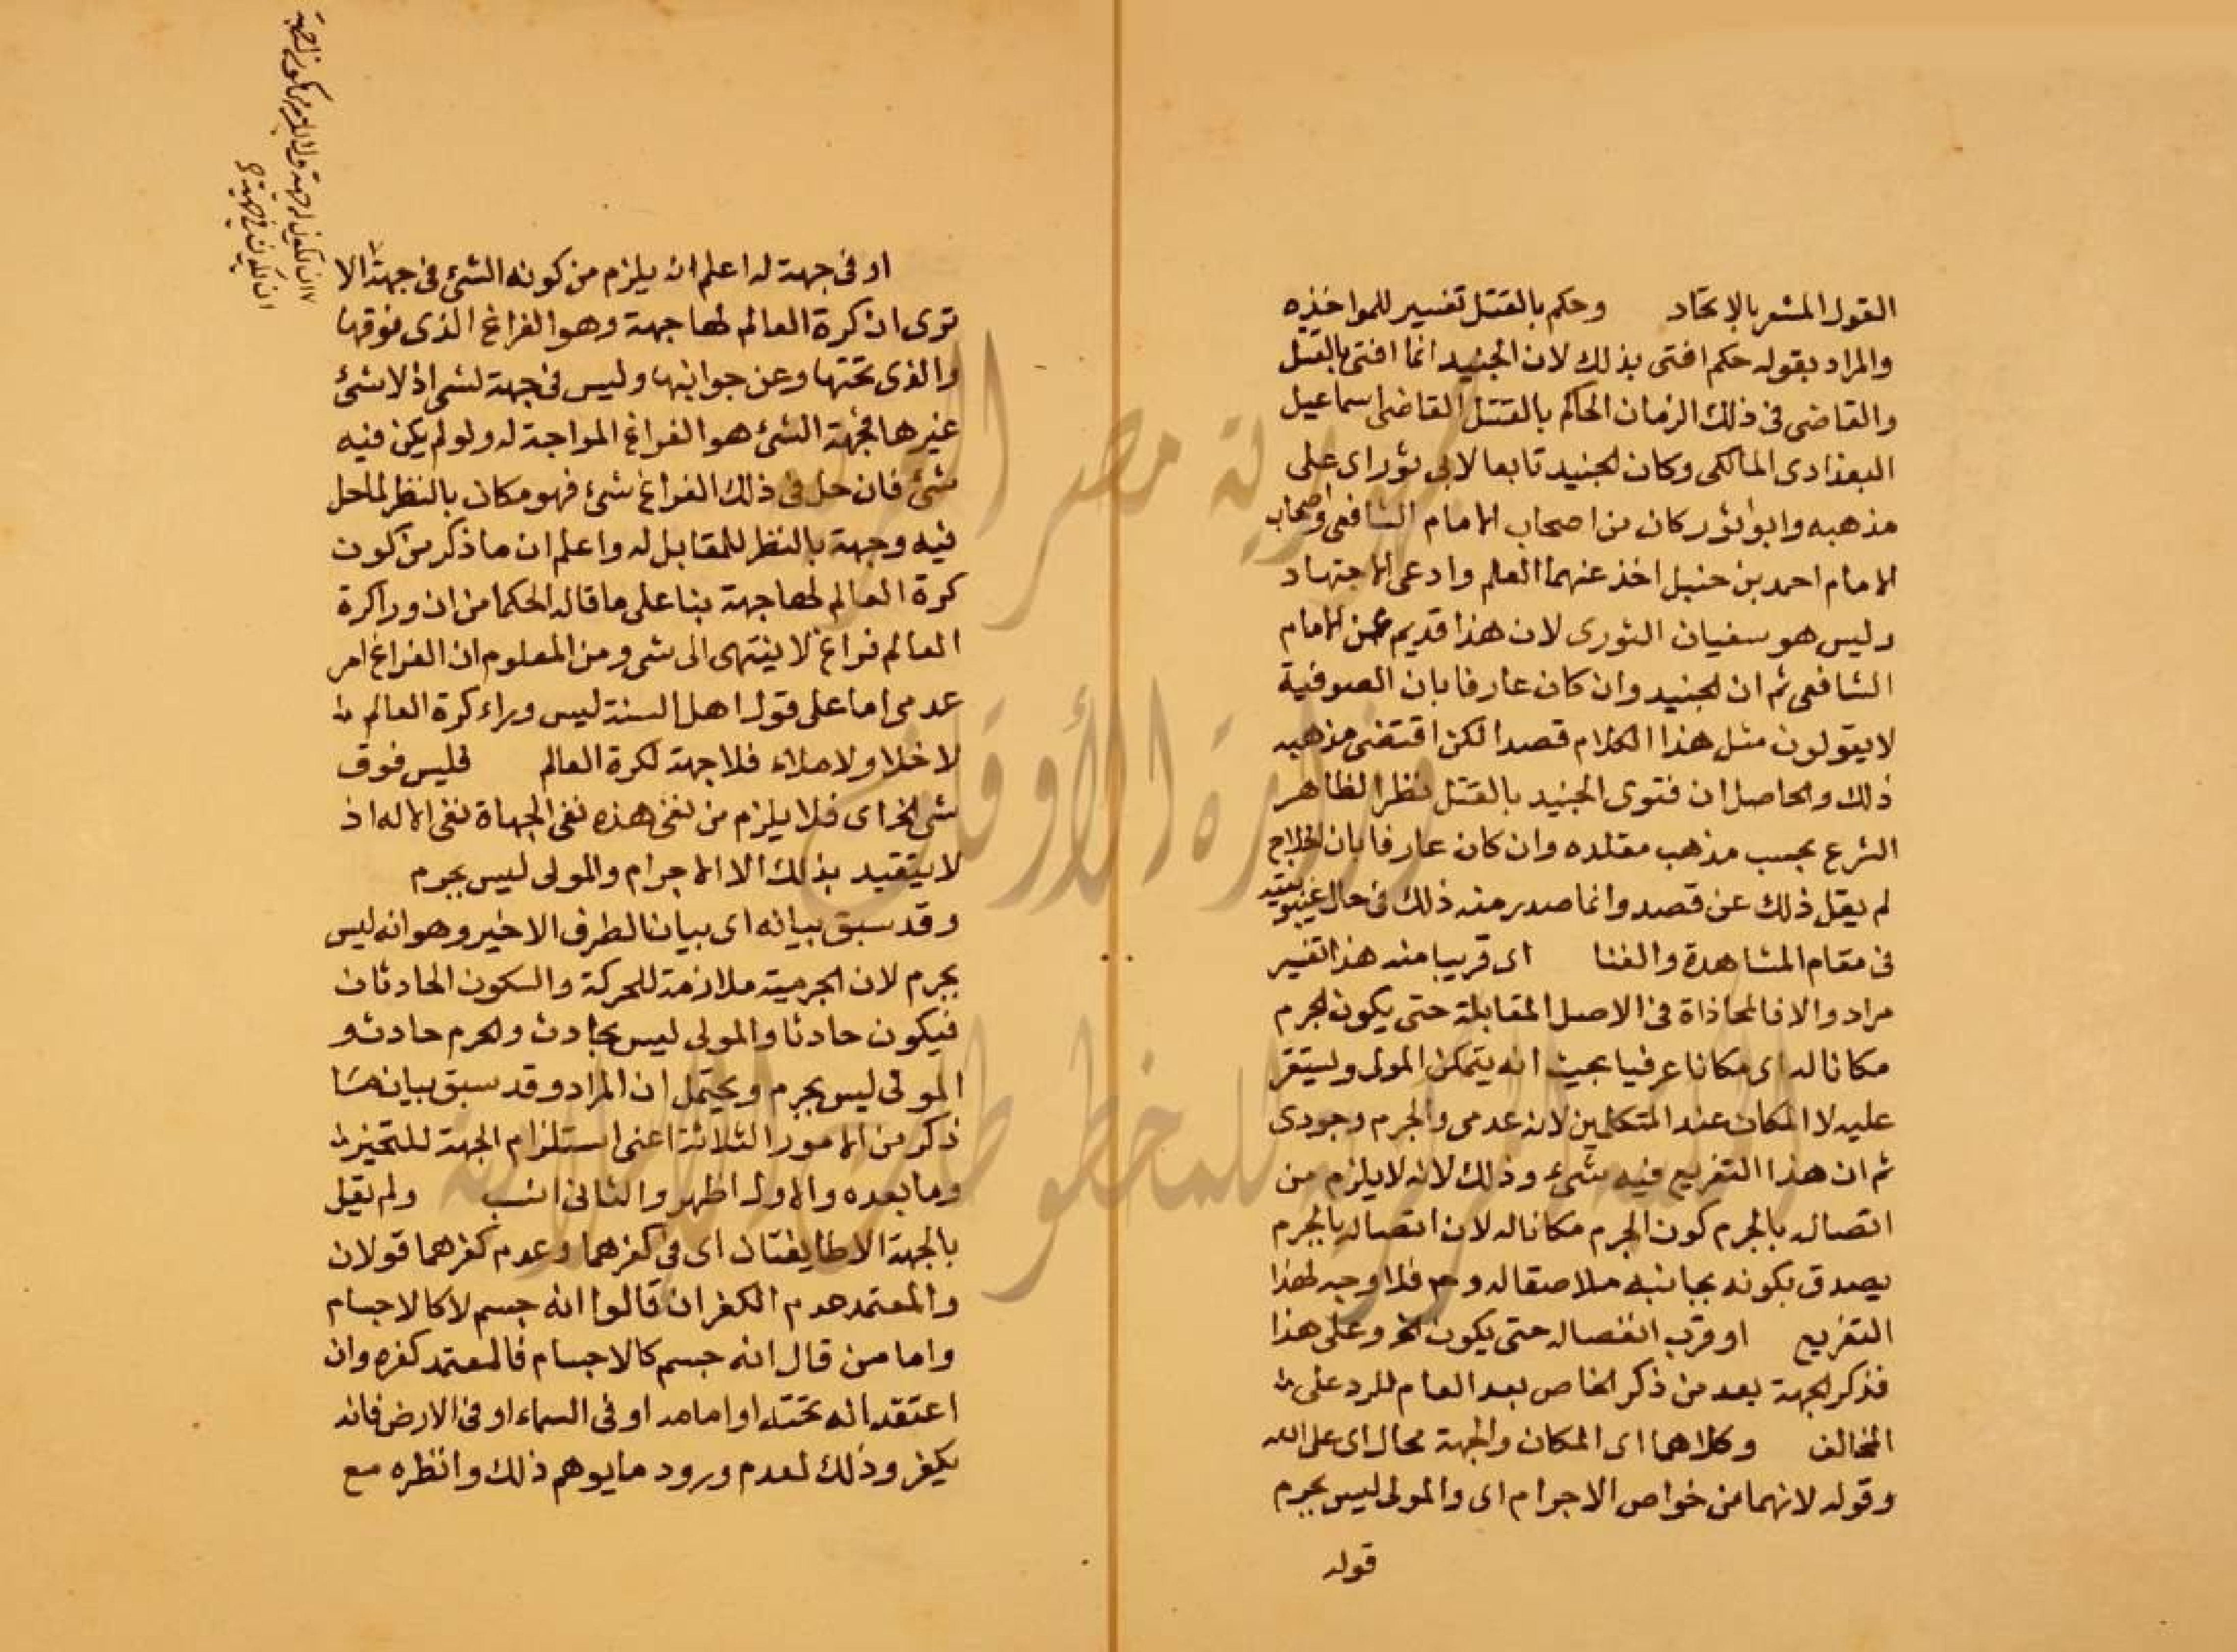 القول المشعر بالاتحاد وحكم بالقتل تفسير للمواخذه
والمراد بقوله حكم افتى بذلك لان الجنيد انما افتى بالقتل
والقاضى فى ذلك الزمان الحاكم بالقتل القاضى اسماعيل
البغدادى المالكى وكان الجنيد تابعا لابى ثور اى على
مذهبه وابو ثور كان من اصحاب الامام الشافعى واصحاب
الامام احمد بن حنبل اخذ عنهما العلم وادعى الاجتهاد
وليس هو سفيان الثورى لان هذا قديم عن الامام
الشافعى ثم ان الجنيد وان كان عارفا بان الصوفية
لا يقولون مثل هذا الكلام قصدا لكن اقتضى مذهبه
ذلك والحاصل ان فتوى الجنيد بالقتل نظرا لظاهر
الشرع بحسب مذهب مقلده وان كان عارفا بان الحلاج
لم يقل ذلك عن قصد وانما صدر منه ذلك فى حال غيبوبته
فى مقام المشاهدة والفنا اى قريبا منه هذا تفسير
مراد والا فالمحاذاة فى الاصل المقابلة حتى يكون الجرم
مكانا له اى مكانا عرفيا بحيث انه يتمكن المولى ويستقر
عليه لا المكان عند المتكلمين لانه عدمى والجرم وجودى
ثم ان هذا التفريع فيه شىء وذلك لانه لا يلزم من
اتصاله بالجرم كون الجرم مكانا له لان اتصاله بالجرم
يصدق بكونه بجانبه ملاصقا له وح فلا وجه لهذا
التفريع او قرب انفصاله حتى يكون الخ وعلى هذا
فذكر الجهة بعد من ذكر الخاص بعد العام للرد على
المخالف وكلاهما اى المكان والجهة محال اى على الله
وقوله لانهما من خواص الاجرام اى والمولى ليس بجرم
قوله
او فى جهة له اعلم انه يلزم من كونه الشئ فى جهة الا
ترى ان كرة العالم لها جهة وهو الفراغ الذى فوقها
والذى تحتها وعن جوانبها وليس فى جهة لشى اذ لا شئ
غيرها فجهة الشئ هو الفراغ المواجه له ولو لم يكن فيه
شئ فان حل فى ذلك الفراغ شئ فهو مكان بالنظر لما حل
فيه وجهة بالنظر للمقابل له واعلم ان ما ذكر من كون
كرة العالم لها جهة بنا على ما قاله الحكما من ان ورا كرة
العالم فراغ لا ينتهى الى شى ومن المعلوم ان الفراغ امر
عدمى اما على قول اهل السنة ليس وراء كرة العالم
لا خلا ولا ملاء فلا جهة لكرة العالم فليس فوق
شى الخ اى فلا يلزم من نفى هذه نفى الجهاة نفى الاله اذ
لا يتقيد بذلك الا الاجرام والمولى ليس بجرم
وقد سبق بيانه اى بيان الطرف الاخير وهو انه ليس
بجرم لان الجرمية ملازمة للحركة والسكون الحادثان
فيكون حادثا والمولى ليس بحادث والجرم حادث و
المولى ليس بجرم ويحتمل ان المراد وقد سبق بيان ما
ذكر من الامور الثلاثة اعنى استلزام الجهة للتحيز
وما بعده والاول اظهر والثانى انسب ولم يقل
بالجهة الا طايفتان اى فى كفرهما وعدم كفرهما قولان
والمعتمد عدم الكفر ان قالوا انه جسم لا كالاجسام
واما من قال انه جسم كالاجسام فالمعتمد كفره وان
اعتقد انه تحته او امامه او فى السماء او فى الارض فانه
يكفر وذلك لعدم ورود ما يوهم ذلك وانظره مع
جمهورية مصر العربية
وزارة الأوقاف
للمخطوطات الإسلامية